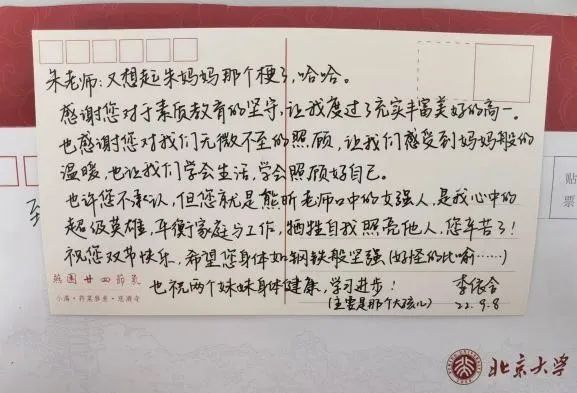 朱老师：又想起朱妈妈那个梗了，哈哈。
感谢您对于素质教育的坚守，让我度过了充实丰富美好的高一。
也感谢您对我们无微不至的照顾，让我们感受到妈妈般的
温暖，也让我们学会生活，学会照顾好自己。
也许您不承认，但您就是熊昕老师口中的女强人，是我心中的
超级英雄，平衡家庭与工作，牺牲自我照亮他人，您辛苦了！
祝您双节快乐，希望您身体如钢铁般坚强（好怪的比喻……）
也祝两个妹妹身体健康，学习进步！
（主要是那个大孩儿）
22.9.8
燕園廿四節氣
贴
票
北京大学